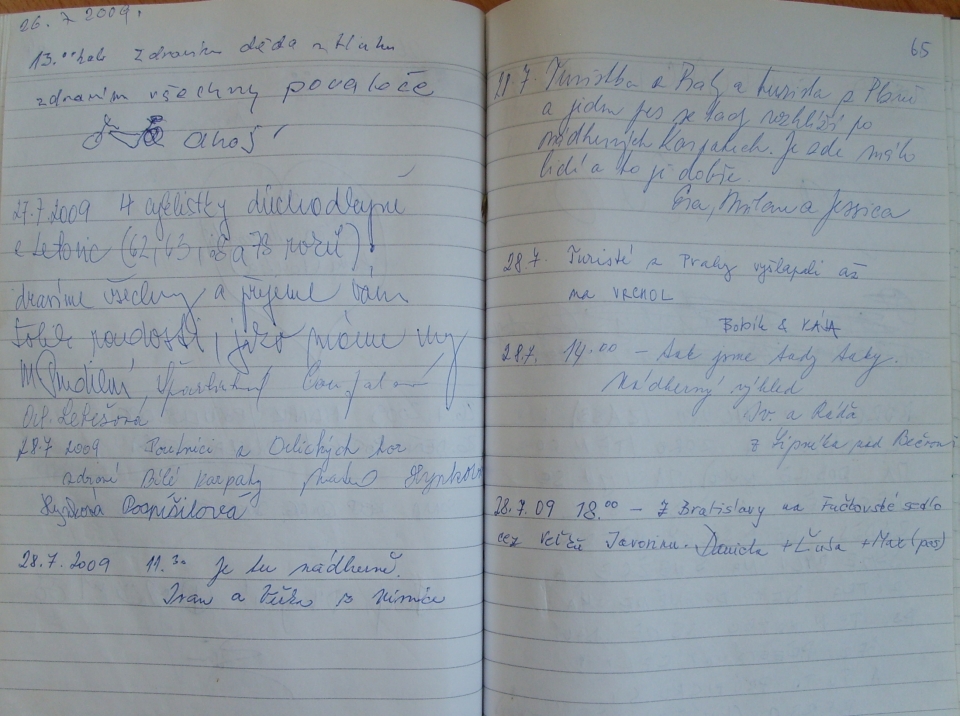 26. 7 2009.
13.00 Zdravím děda
zdravím všechny povaleče
ahoj
27.7.2009 4 cyklistky důchodkyně
z Letovic (62, 63, a 73 roků)!
zdravíme všechny a přejeme vám
tolik radosti, jako máme my
28.7 2009 Poutníci z Orlických hor
zdraví Bílé Karpaty
Pospíšilová
28.7.2009 11.30 Je tu nádherně.
Ivan a Věrka z
65
28.7. Turistka z Prahy a turista z Plzně
a jeden pes se tady rozhlíží po
nádherných Karpatech. Je zde málo
lidí a to je dobře.
Eva, Milan a Jessica
28.7. Turisté z Prahy vyšlapali až
na VRCHOL
Bobík & KÁJA
28.7. 14.00 - tak jsme tady taky.
Nádherný výhled
Iv. a Ráďa
z Lipníka nad Bečvou
28.7.09 18.00 - Z Bratislavy na sedlo
cez Veľkú Javorinu. Daniela + Ľuba + Max (pes)